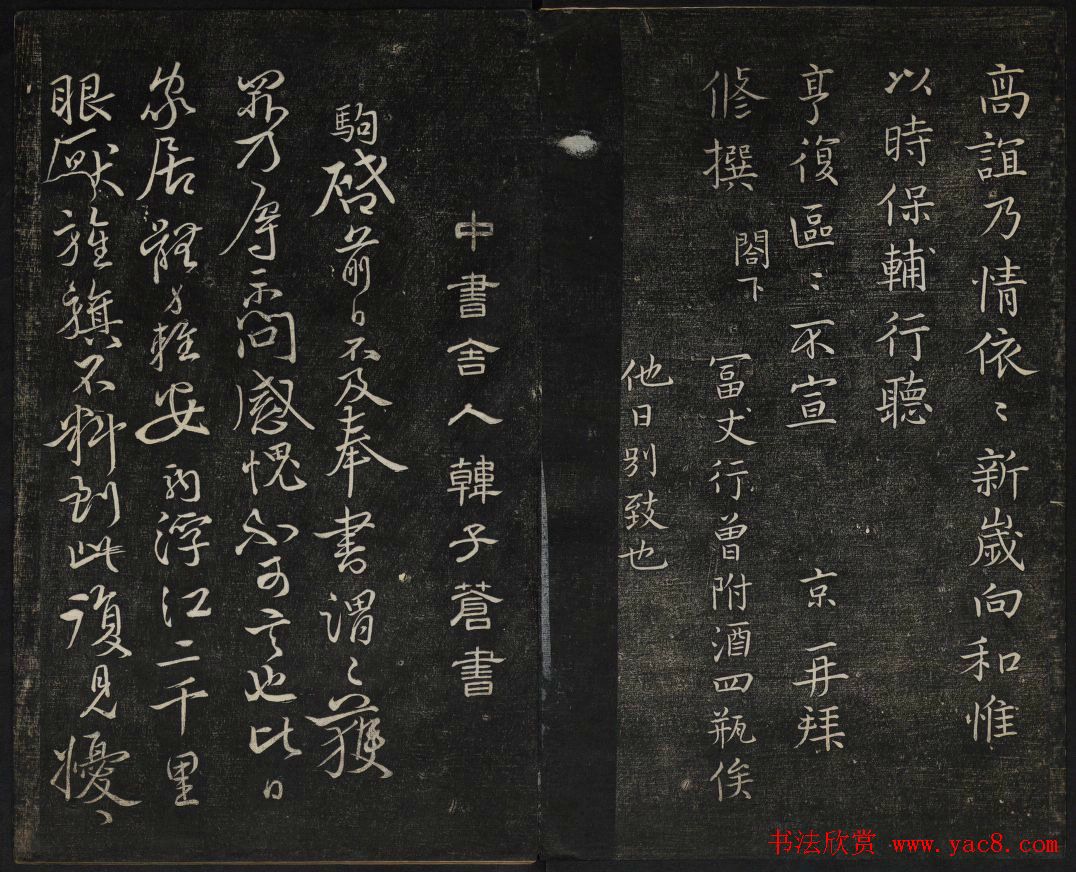 高誼乃情依〻新歲向和惟
以時保輔行聽
亨復區〻不宣 京再拜
修撰 閤下
冨丈行曾附酒四瓶俟
他日別致也
中書舍人韓子蒼書
駒啓前日不及奉書謂〻獲
罪乃辱示問感愧不可言也比日
家居體力輕安浮江二千里
眼厭旌旗不料到此復見擾〻
书法欣赏 www.yac8.com